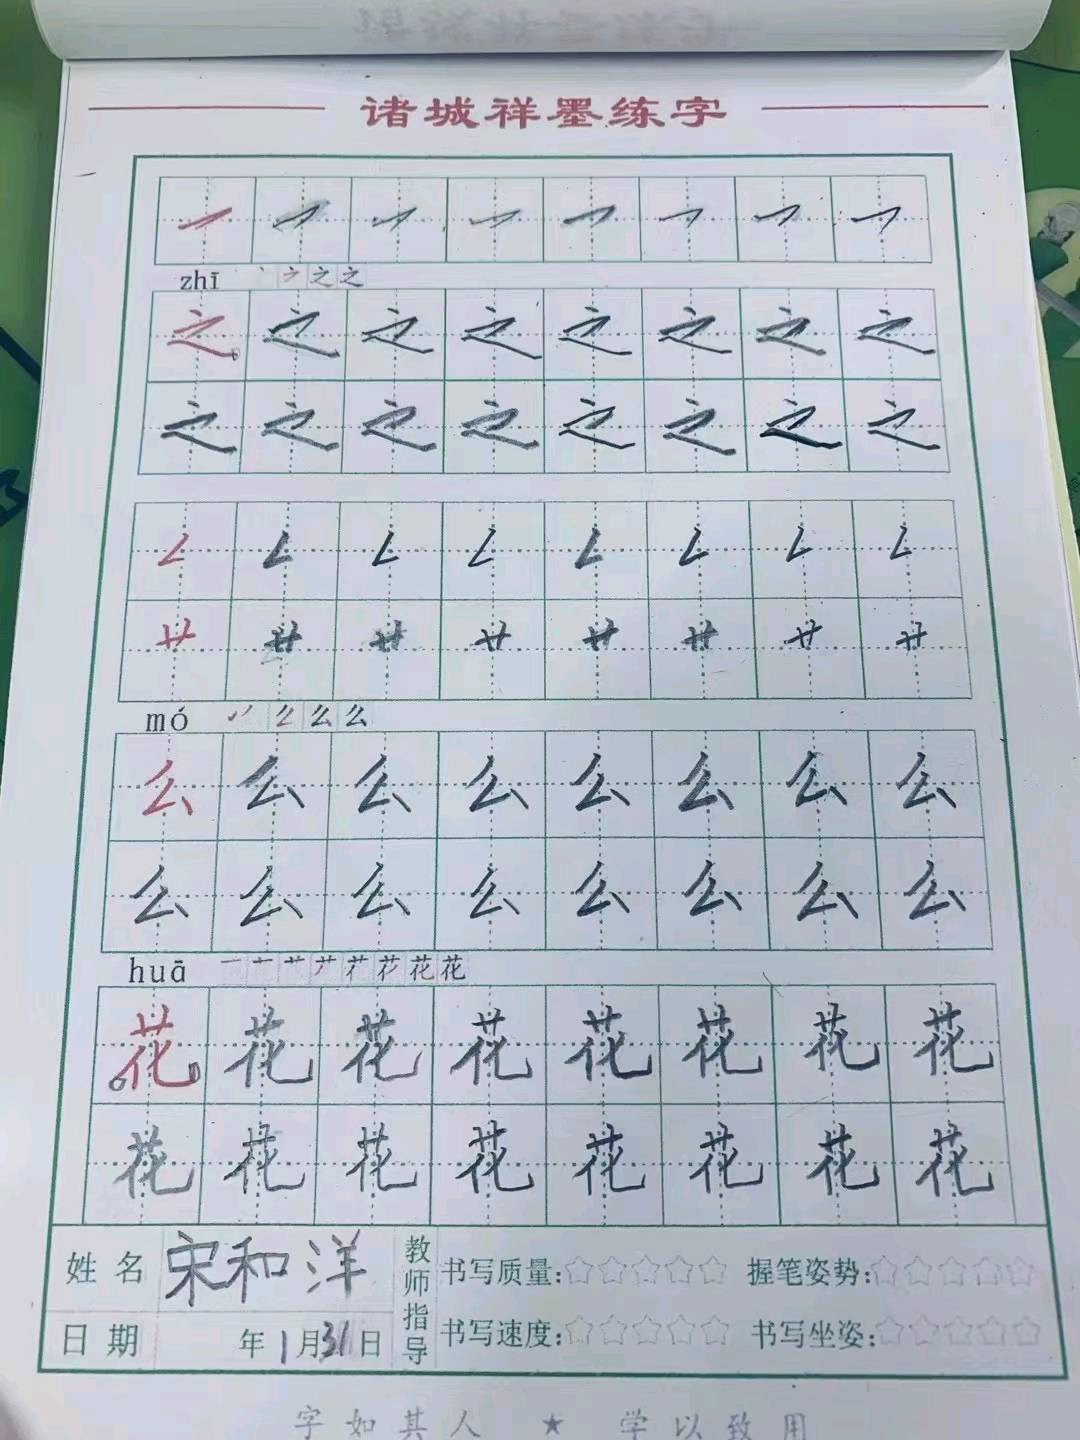 诸城祥墨练字
zhī
之之之之之之之之
之之之之之之之之
mó
么么么么么么么么
么么么么么么么么
huā
花花花花花花花花
花花花花花花花花
姓名 宋和洋
日期 年1月31日
教师指导
书写质量:☆☆☆☆☆ 握笔姿势:☆☆☆☆☆
书写速度:☆☆☆☆☆ 书写坐姿:☆☆☆☆☆
字如其人 ★ 学以致用